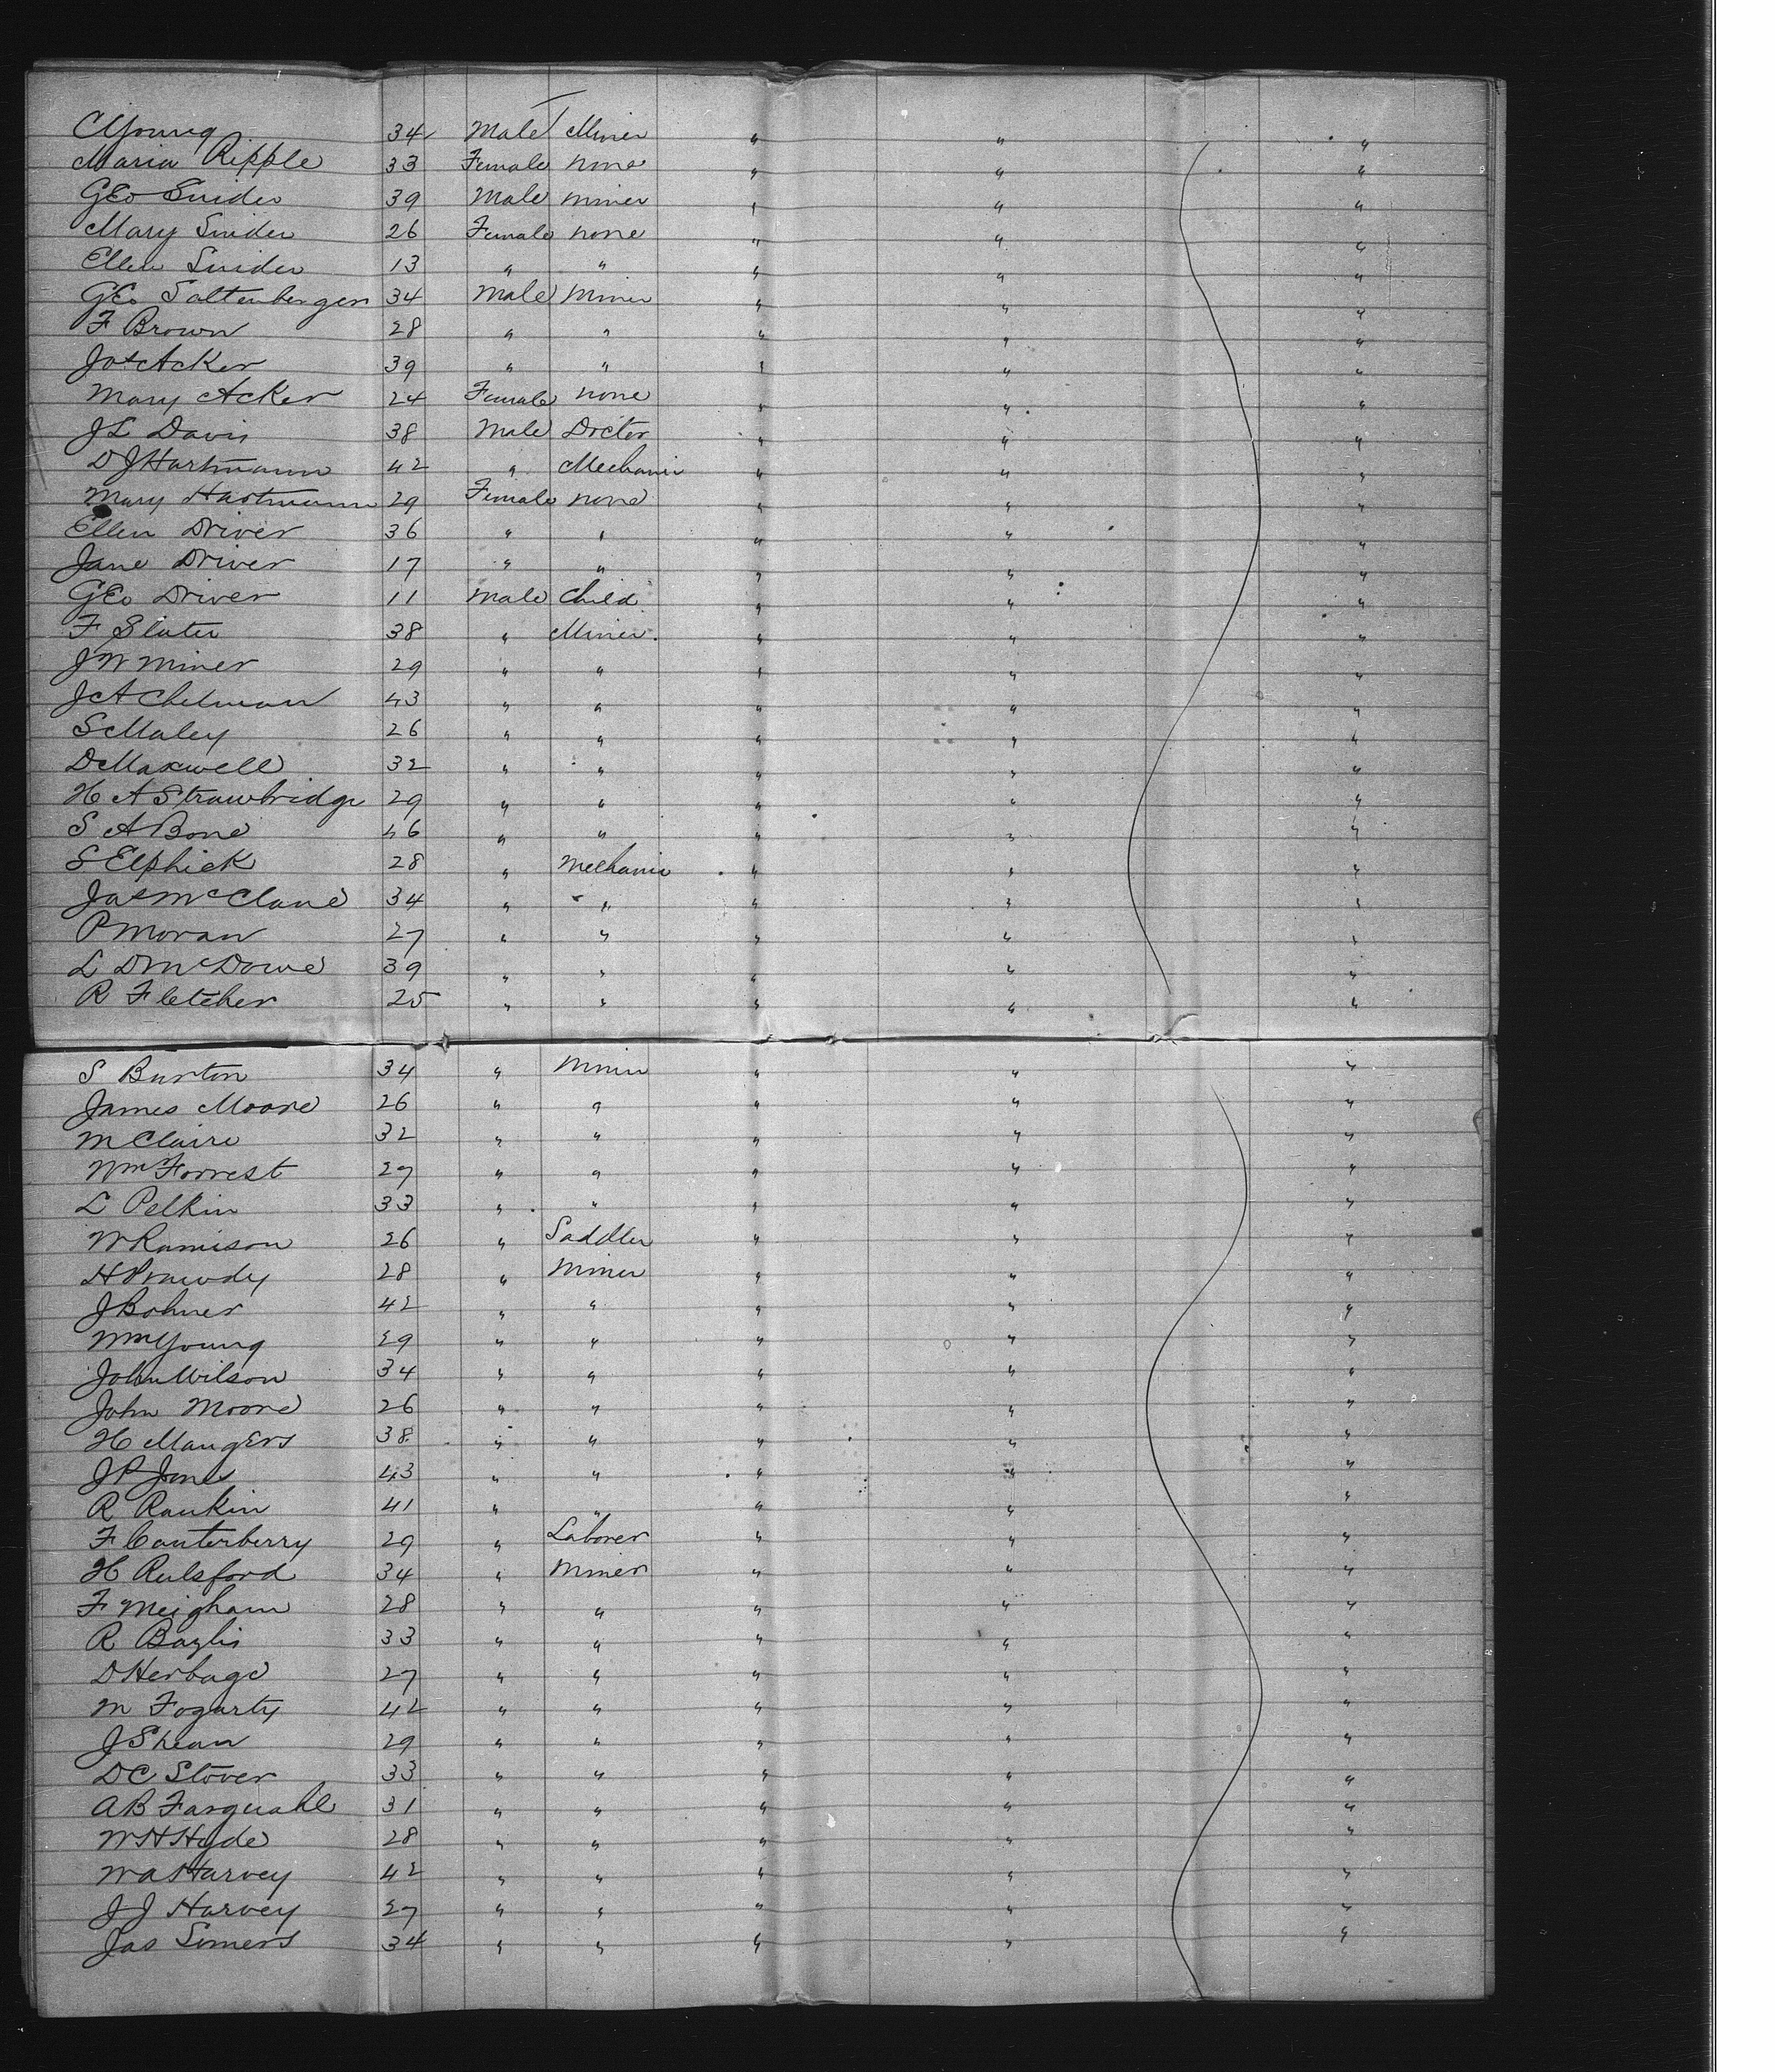 C Young 34 Male Miner " " "
Maria Ripple 33 Female none " " "
GEo Snider 39 Male miner " " "
Mary Snider 26 Female none " " "
Ellen Snider 13 " " " " "
GEo Saltenberger 34 Male Miner " " "
F Brown 28 " " " " "
Jas Acker 39 " " " " "
Mary Acker 24 Female none " " "
J L Davis 38 Male Doctor " " "
D J Hartmann 42 " Mechanic " " "
Mary Hartmann 29 Female none " " "
Ellen Driver 36 " " " " "
Jane Driver 17 " " " " "
GEo Driver 11 Male Child " " "
F Slater 38 " Miner " " "
J W Miner 29 " " " " "
J A Chelman 43 " " " " "
S Maley 26 " " " " "
D Maxwell 32 " " " " "
H A Strawbridge 29 " " " " "
S A Bone 46 " " " " "
S Elphick 28 " Mechanic " " "
Jas McClane 34 " " " " "
P Moran 27 " " " " "
L D McDowe 39 " " " " "
R Fletcher 25 " " " " "
S Burton 34 " Miner " " "
James Moore 26 " " " " "
M Claire 32 " " " " "
Wm Forrest 27 " " " " "
L Pelkin 33 " " " " "
W Ramison 26 " Saddler " " "
H 28 " Miner " " "
J Bohner 42 " " " " "
Wm Young 29 " " " " "
John Wilson 34 " " " " "
John Moore 26 " " " " "
H MaugErs 38 " " " " "
J P Jones 43 " " " " "
R Rankin 41 " " " " "
F Canterberry 29 " Laborer " " "
H Rulsford 34 " Miner " " "
F Meigham 28 " " " " "
R Bazlis 33 " " " " "
D Herbage 27 " " " " "
M Fogarty 42 " " " " "
J Shean 29 " " " " "
D C Stover 33 " " " " "
A B Farquahl 31 " " " " "
W H Hyde 28 " " " " "
W A Harvey 42 " " " " "
J J Harvey 27 " " " " "
Jas Simers 34 " " " " "